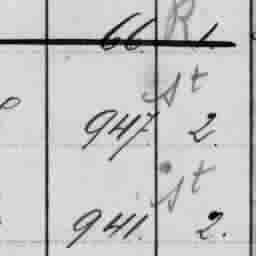 66. R 1.
st
947. 2.
st
941. 2.